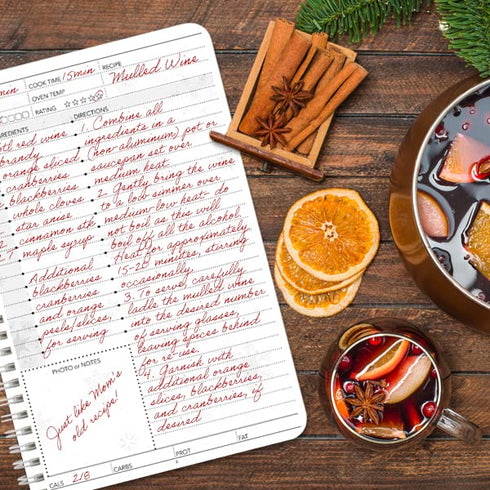 RECIPE
Mulled Wine
min
COOK TIME 15 min
OVEN TEMP
RATING
REDIENTS
DIRECTIONS
otl red wine
brandy
orange sliced
cranberries
blackberries
whole cloves
star anise
cinnamon stk
T maple syrup
Additional
blackberries,
cranberries
and orange
peels/slices,
for serving
1. Combine all
ingredients in a
(non-aluminum) pot or
saucepan set over
medium heat.
2. Gently bring the wine
to a low simmer over
medium-low heat- do
not boil as this will
boil off all the alcohol.
Heat for approximately
15-20 minutes, stirring
occasionally.
3. To serve, carefully
ladle the mulled wine
into the desired number
of serving glasses,
leaving spices behind
for re-use.
4. Garnish with
additional orange
slices, blackberries,
and cranberries, if
desired
PHOTO or NOTES
Just like Mom's
old recipe!
CALS 218
CARBS
PROT
FAT